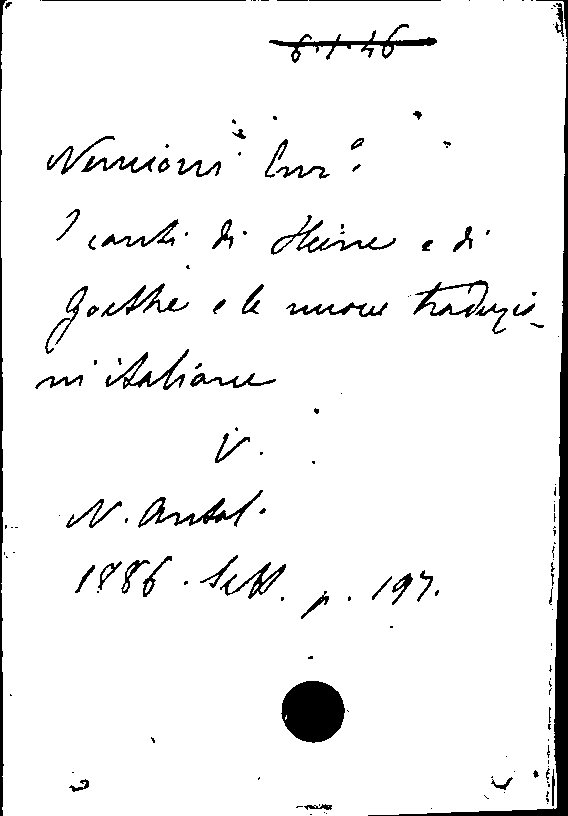 6.1.46
Nencioni Enr.º
I canti di Heine e di
Goethe e le nuove traduzio-
ni italiane
V.
N. Antol.
1886. Sett. p. 197.